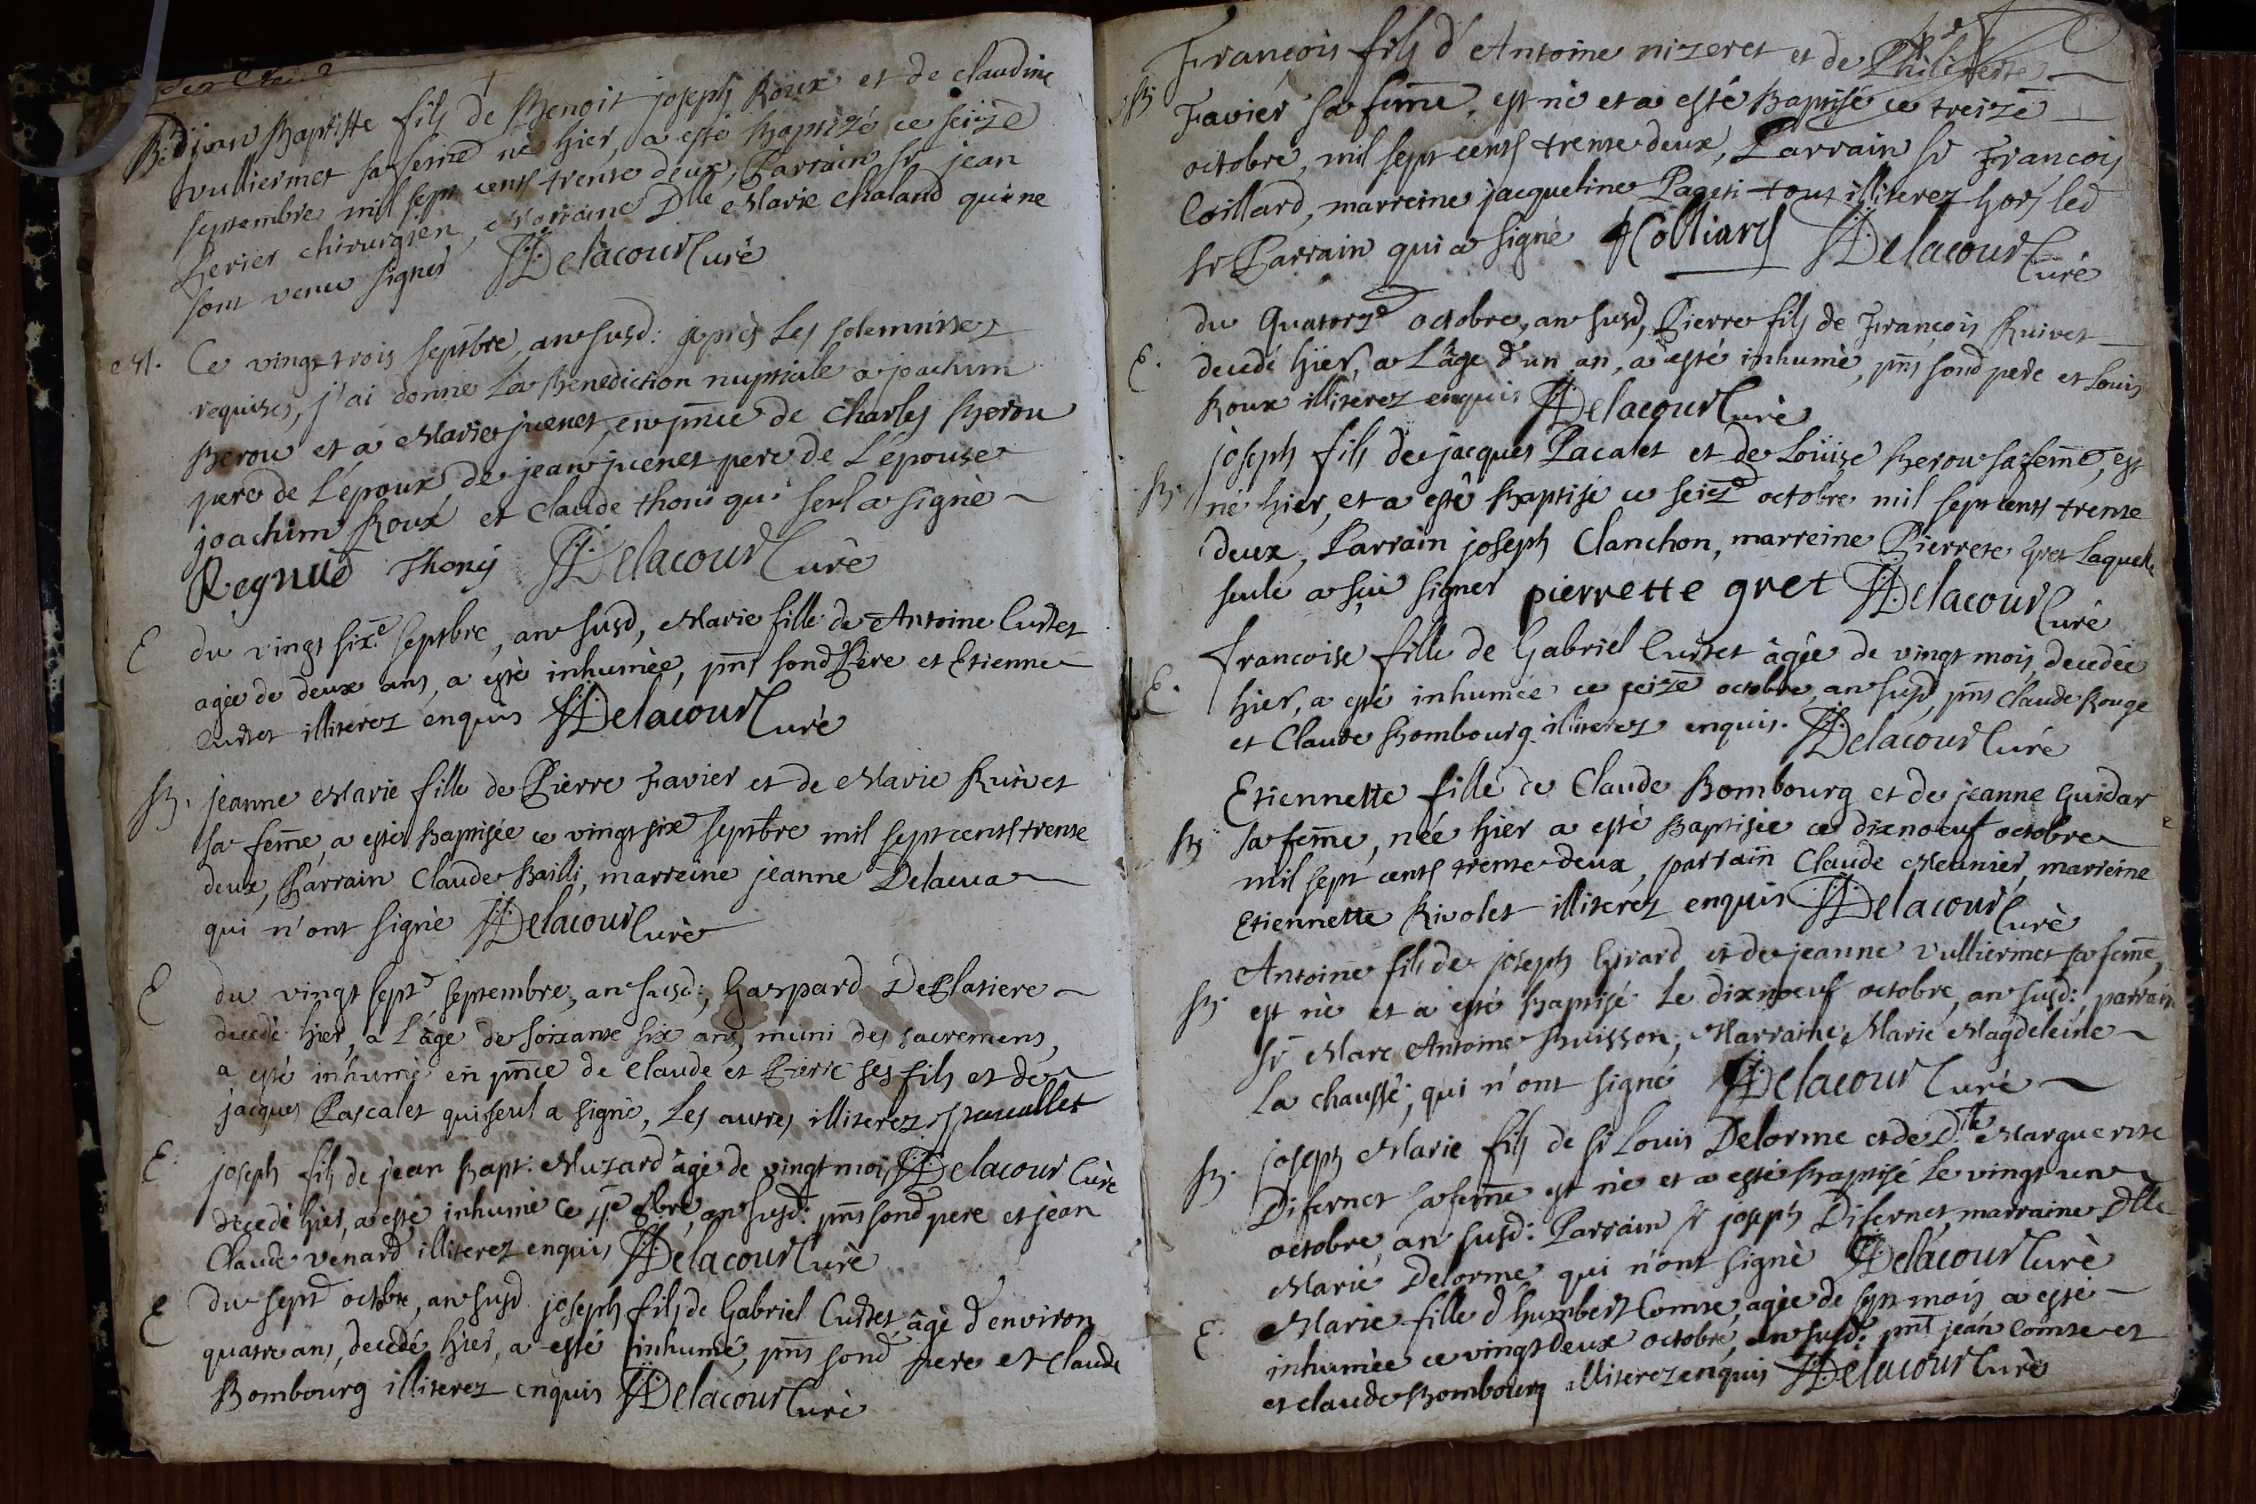 B. jean Baptiste fils de Benoit joseph Roux et de claudine
vulliermet sa feme né hier, a esté baptizé ce seize
septembre mil sept cents trente deux, Parrain sr jean
Perier chirurgien, Marraine Dlle Marie chaland qui ne
sont venu signer Delacour Curé
M. Ce vingt trois septbre, an susd: après les solemnitez
requises, j'ai donné La Benediction nuptiale a joachim
Berou et a Marie juenet, en pnce de Charles Berou
pere de L'époux, de jean juenet pere de L'épouse
joachim Roux et Claude thoni qui seul a signé
Regnué Thony Delacour Curé
E du vingt sixe septbre, an susd, Marie fille de Antoine Curtet
agée de deux ans, a esté inhumée, pnts sond Pere et Etienne
Curtet illiterez enquis Delacour Curé
B. jeanne Marie fille de Pierre Favier et de Marie Ruivet
sa feme, a esté baptisée ce vingt six septbre mil sept cents trente
deux, Parrain Claude Bailli, marreine jeanne Delacua
qui n'ont signé Delacour Curé
E du vingt septe septembre, an susd:, Gaspard DePlatiere
decedé hier, a L'age de soixante six ans, muni des sacremens,
a esté inhumé en pnce de Claude et Pierre ses fils et de
jacques Pascalet qui seul a signé, Les autres illiterez J pascallet
E. joseph fils de jean Bapt: Muzard agé de vingt mois Delacour Curé
decedé hier, a esté inhumé ce 1e 8bre, an susd: pnts sond pere et jean
Claude venard illiterez enquis Delacour Curé
E du septe octobre, an susd joseph fils de Gabriel Curtet âgé d'environ
quatre ans, decedé hier, a esté inhumé, pnts sond pere et Claude
Bombourg illiterez enquis Delacour Curé
François fils d'Antoine nizeret et de Philiberte
B. Favier sa feme, est né et a esté Baptisé ce treize
octobre, mil sept cents trente deux, Parrain sr François
Coillard, marreine jacqueline Pageti tous illiterez hors led
sr Parrain qui a signé Colliard Delacour Curé
du Quatorze octobre, an susd, Pierre fils de François Ruivet
E. decedé hier, a L'âge d'un an, a esté inhumé, pnts sond pere et Louis
Roux illiterez enquis Delacour Curé
joseph fils de jacques Pacalet et de Loüize Berou sa feme, est
B. né hier, et a esté Baptisé ce seize octobre mil sept cents trente
deux, Parrain joseph Clanchon, marreine Pierrete Gret Laquelle
seule a sçu signer pierrette gret Delacour Curé
Francoise fille de Gabriel Curtet âgée de vingt mois, decedée
E. hier, a esté inhumée ce seize octobre, an susd, pnts Claude Rouge
et Claude Bombourg illiterez enquis. Delacour Curé
Etiennette fille de Claude Bombourg et de jeanne Guidar
B. sa feme, née hier a esté Baptisée ce dixnoeuf octobre
mil sept cents trente deux, parrain Claude Meunier, marreine
Etiennette Rivolet illiterez enquis Delacour Curé
Antoine fils de joseph Girard et de jeanne Vulliermet sa feme,
B. est né et a esté Baptisé Le dixnoeuf octobre, an susd: parrain
sr Marc Antoine Buisson, Marraine Marie Magdeleine
La chaussé; qui n'ont signé Delacour Curé
joseph Marie fils de sr Louis Delorme et de Dlle Marguerite
B. Difernet sa feme est né et a esté Baptisé Le vingt un
octobre, an susd: Parrain sr joseph Difernet, marraine Dlle
Marie Delorme qui n'ont signé Delacour Curé
Marie fille d'humbert Comte, agée de sept mois a esté
E. inhumée ce vingt deux octobre, an susd: pnts jean Comte et
et claude Bombourg illiterez enquis Delacour Curé